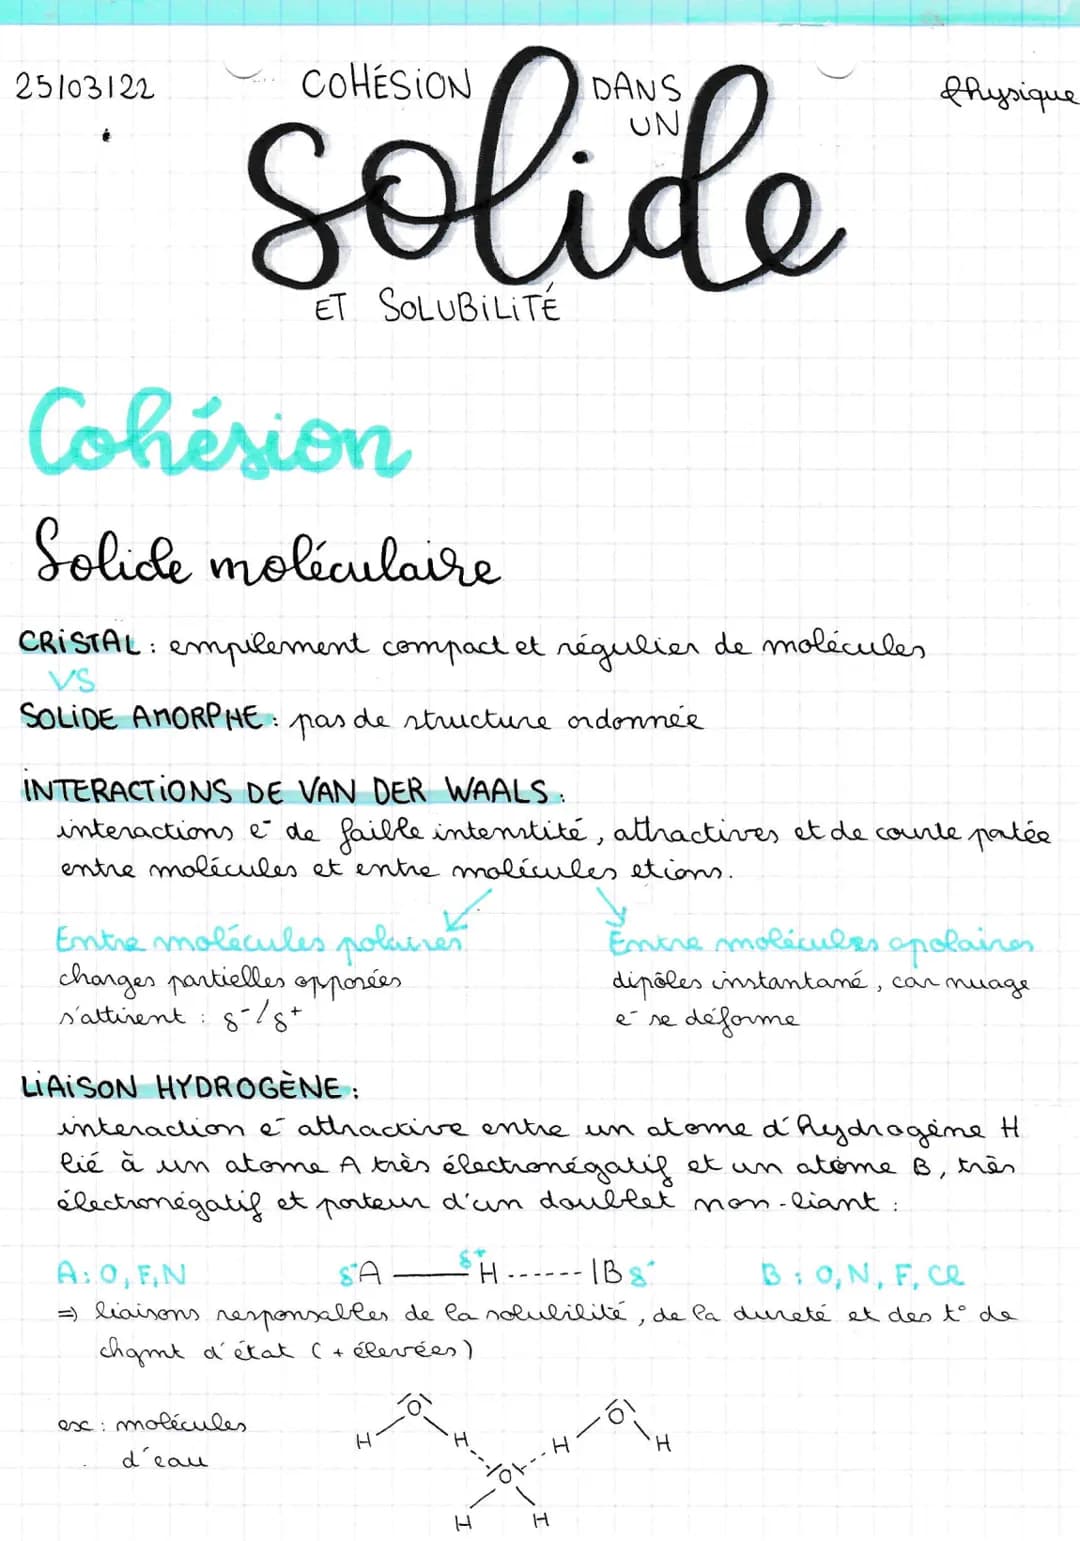 25/03/22 COHÉSION DANS UN Physique
solide
ET SOLUBILITÉ
Cohésion
Solide moléculaire
CRISTAL : empilement compact et régulier de molécules
VS
SOLIDE AMORPHE : pas de structure ordonnée
INTERACTIONS DE VAN DER WAALS :
interactions e⁻ de faible intenstité, attractives et de courte portée
entre molécules et entre molécules et ions.
Entre molécules polaires
charges partielles opposées
s'attirent : δ⁻/δ⁺
Entre molécules apolaires
dipôles instantané, car nuage
e⁻ se déforme
LIAISON HYDROGÈNE :
interaction e⁻ attractive entre un atome d'hydrogène H
lié à un atome A très électronégatif et un atome B, très
électronégatif et porteur d'un doublet non-liant :
A : O, F, N δ⁻A — δ⁺H ------ |B δ⁻ B : O, N, F, Cl
⇒ liaisons responsables de la solubilité, de la dureté et des t° de
chgmt d'état (+ élevées)
ex : molécules
d'eau
O O
H H H H
O
H H